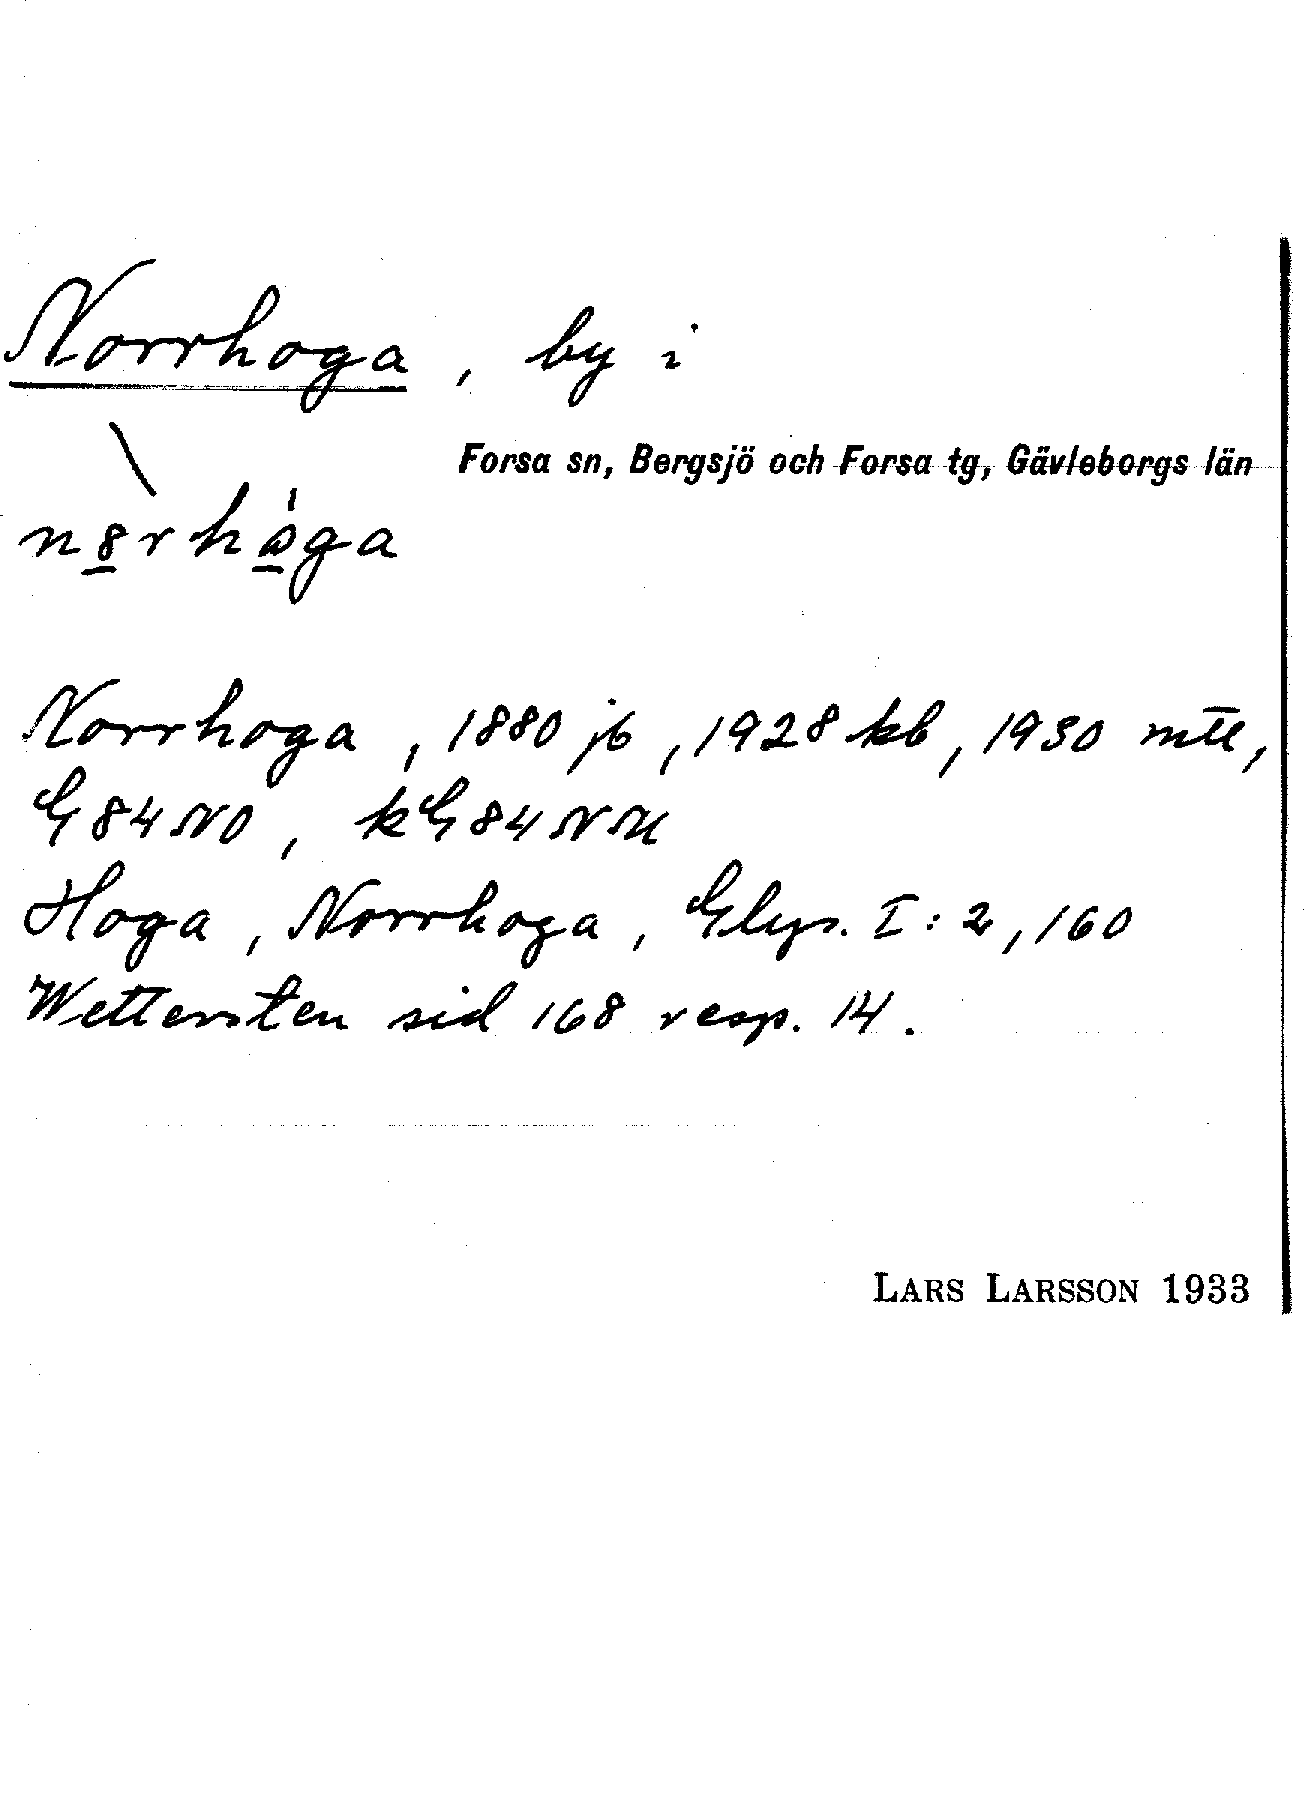 Norrhoga, by i
Forsa sn, Bergsjö och Forsa tg, Gävleborgs län
Norrhoga, 1880 jb, 1928 kb, 1930 mtl,
G 84 NO, kG 84 NM
Hoga, Norrhoga, Glys. I: 2, 160
Wettersten sid 168 resp. 14.
LARS LARSSON 1933